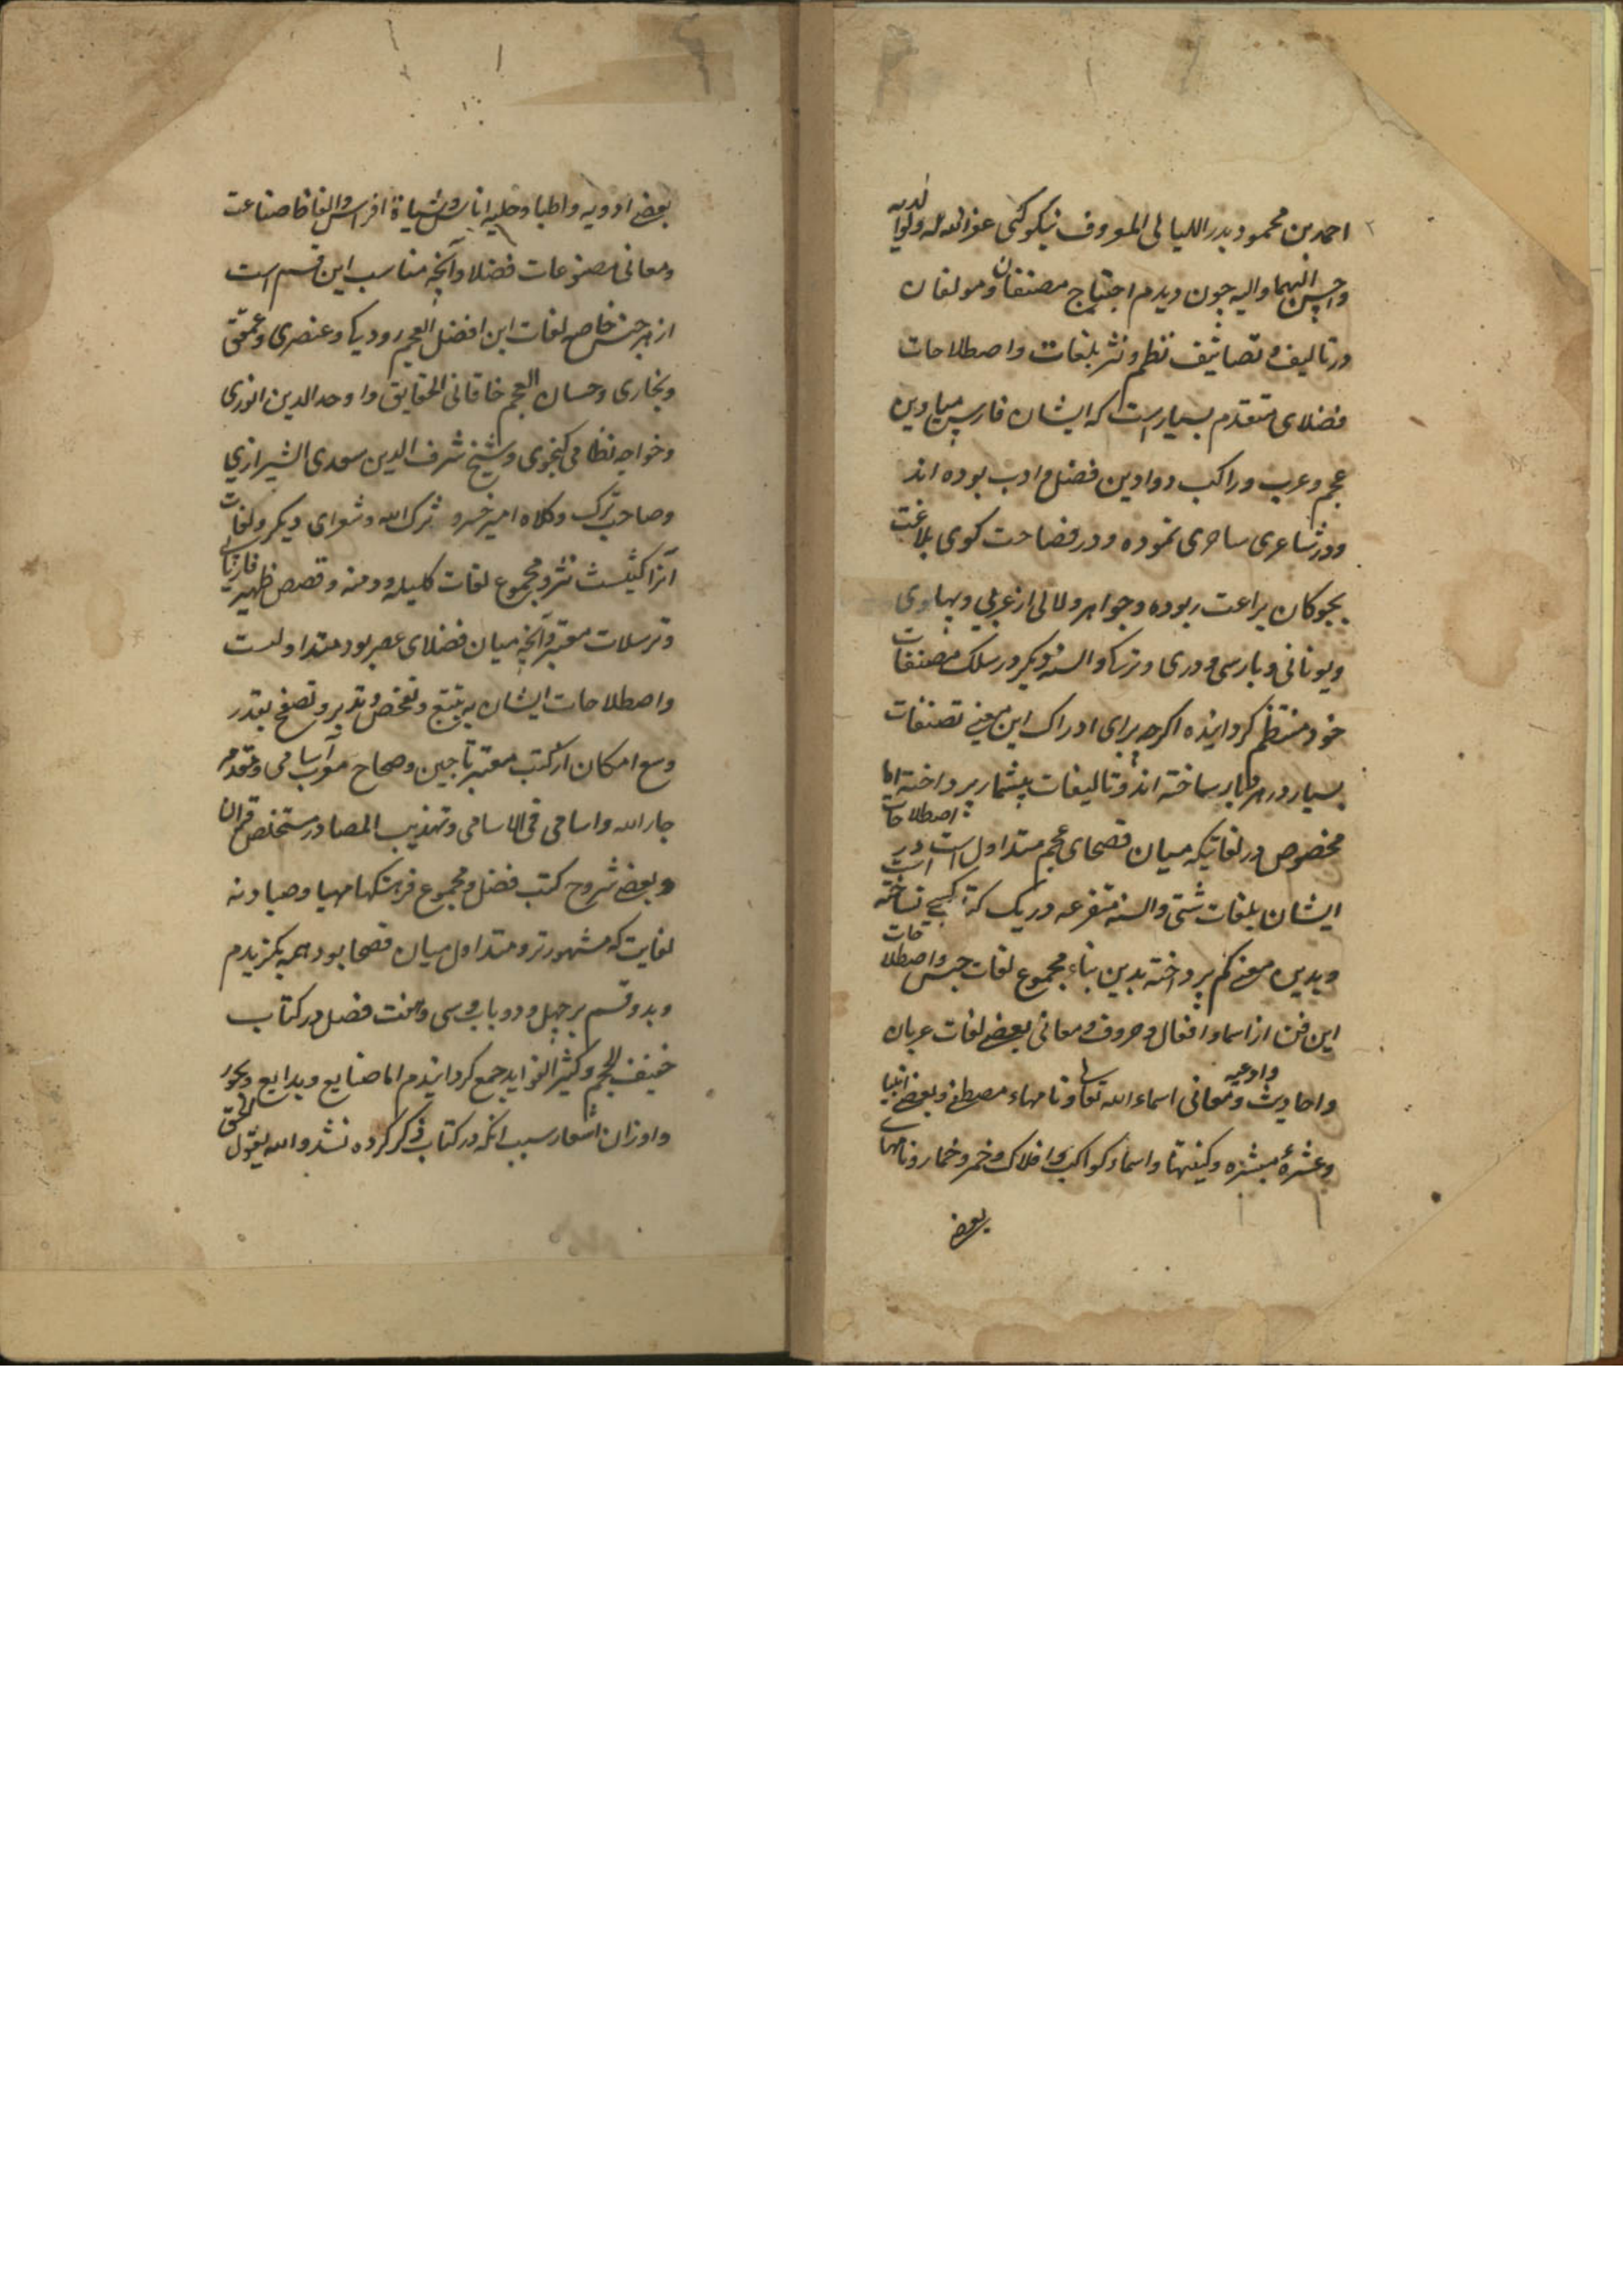 ۲
احمد بن محمود بدر اللیالی المعروف نیکو کنی غفر الله له ولوالدیه
واحسن الیهما والیه چون دیدم احتیاج مصنفان و مولفان
در تالیف و تصانیف نظم و نثر بلغات واصطلاحات
فضلای متقدم بسیارست که ایشان فارس میادین
عجم وعرب وراکب دوادین فضل و ادب بوده اند
ودر شاعری ساحری نموده ودر فصاحت کوی بلاغت
بچوکان براعت ربوده وجواهر ولالی از عربی وپهلوی
ویونانی وپارسی ودری وترکی والسنه دیکر در سلک مصنفات
خود منتظم کردانیده اکرچه برای ادراک این معنی تصنفات
بسیار در هر بابر ساخته اند وتالیفات بیشمار پرداخته اما
مخصوص در لغاتیکه میان فصحای عجم متداول است در اصطلاحات
ایشان بلغات شتی والسنه متفرعه در یک کتاب کسی نساخته است
وبدین معنی کم پرداخته بدین بناء مجموع لغات جنس واصطلاحات
این فن از اسما وافعال وحروف ومعانی بعضی لغات عربان
واحادیث وادعیه ومعانی اسماء الله تعالی ونامهاء مصطفی وبعضی انبیا
وعشرهٔ مبشره وکیفیتها واسماء کواکب وافلاک وخمر وخمار ونامهای
بعضی
بعضی ادویه واطبا وحلیه اناث وشیاة افراس والفاظ صناعت
ومعانی مصنوعات فضلا وآنچه مناسب این قسم است
از هر جنس خاصه لغات این افضل العجم رودیکی وعنصری وعمعق
وبخاری وحسان العجم خاقانی الحقایق واوحد الدین انوری
وخواجه نظامی کنجوی وشیخ شرف الدین سعدی الشیرازی
وصاحب ترک وکلاه امیر خسرو ترک الله وشعرای دیکر ولغات
آنرا کیشست نثر ومجموع لغات کلیله ودمنه وقصص ظهیر فاریابی
وترسلات معتبر وآنچه میان فضلای عصر بود متداولست
واصطلاحات ایشان به تتبع وتفحص وتدبر وتصفح بقدر
وسع امکان از کتب معتبر تاجین وصحاح معرب اسامی ومقدمه
جار الله واسامی فی الاسامی وتهذیب المصادر مستخلص قران
وبعضی شروح کتب فضل ومجموع فرهنکها مهیا وصیادنه
لغایت که مشهورتر ومتداول میان فصحا بود همه بکزیدم
وبدو قسم بر چهل ودو باب وسی وهفت فصل در کتاب
خفیف الحجم وکثیر الفواید جمع کردانیدم اما صنایع وبدایع وبحور
واوزان اشعار سبب انکه در کتاب ذکر کرده نشد والله یقول الحق